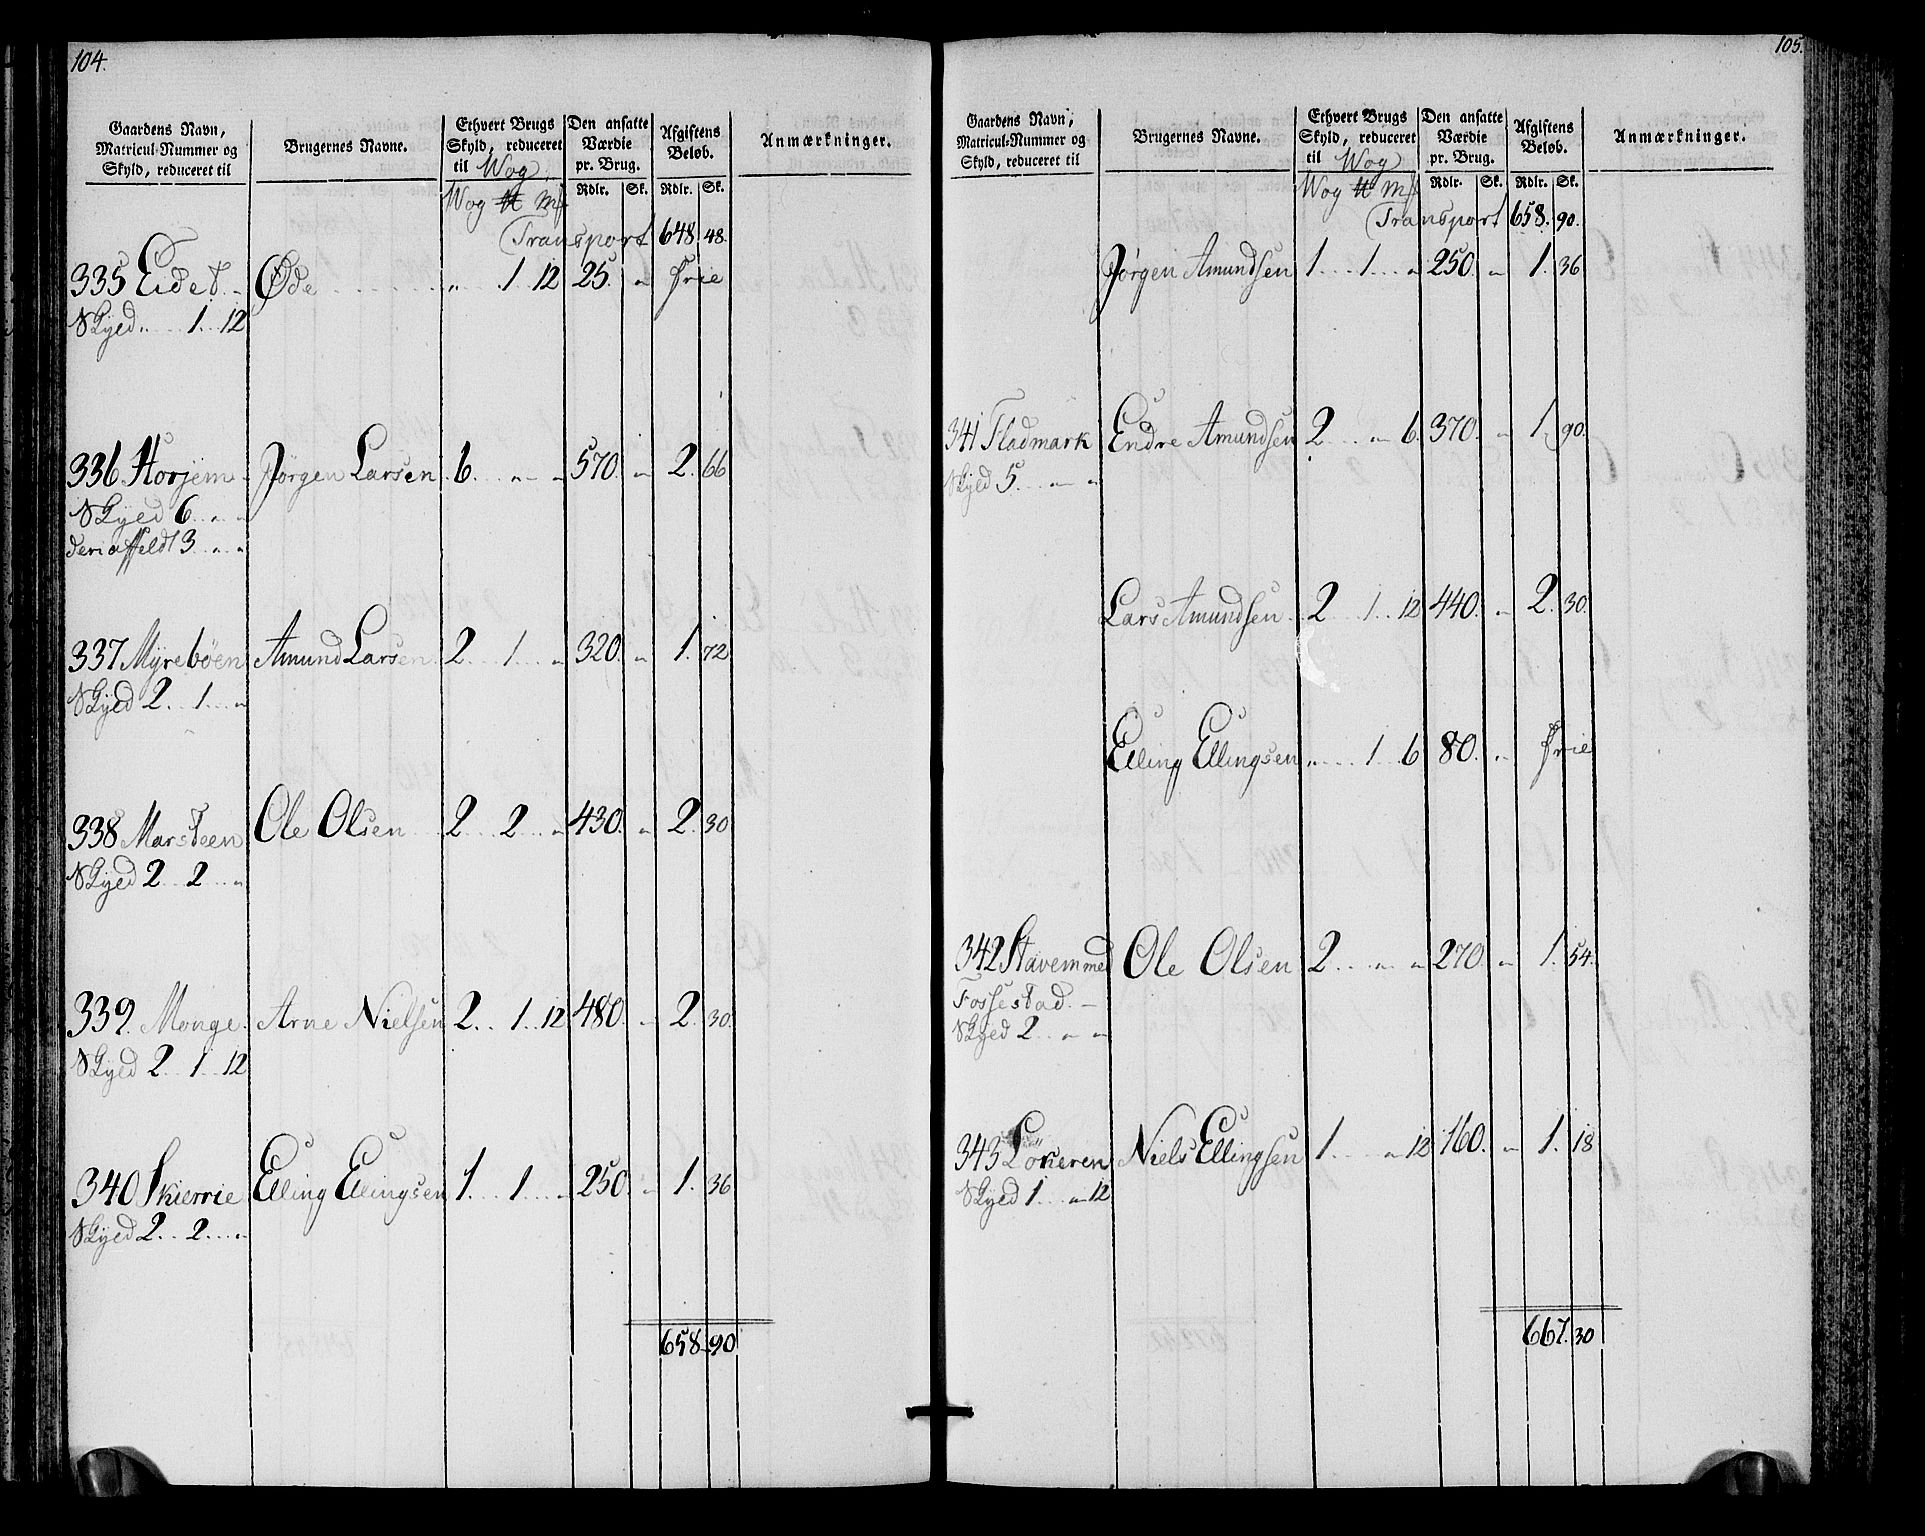 104.
Gaardens Navn, Matricul-Nummer og Skyld, reduceret til
Brugernes Navne.
Ethvert Brugs Skyld, reduceret til Wog.
Den ansatte Værdie pr. Brug.
Afgiftens Beløb.
Anmærkninger.
Wog ℔ Mſ
Rdlr. Sk. Rdlr. Sk.
Transport 648. 48.
335 Eidet Øde „ 1 12 25. „ frie
Skyed „ 1 12
336 Horjem Jørgen Larsen 6. „ „ 570. „ 2. 66
Skyed 6 „ „
deri affeldt 3 „ „
337 Myrebøen Amund Larsen 2 1 „ 320. „ 1. 72
Skyed 2. 1. „
338 Marsteen Ole Olsen 2 2 „ 430. „ 2. 30
Skyed 2 2 „
339. Monge. Arne Nielsen 2. 1. 12 480. „ 2. 30.
Skyed 2 1 12
340 Skierrie Elling Ellingsen 1. 1 „ 250. „ 1. 36
Skyed 2. 2. „
658. 90
105.
Gaardens Navn, Matricul-Nummer og Skyld, reduceret til
Brugernes Navne.
Ethvert Brugs Skyld, reduceret til Wog
Den ansatte Værdie pr. Brug.
Afgiftens Beløb.
Anmærkninger.
Wog ℔ Mſ
Rdlr. Sk. Rdlr. Sk.
Transport 658. 90.
Jørgen Amundsen 1. 1. „ 250. „ 1. 36
341 Fladmark Endre Amundsen 2 „ 6. 370. „ 1. 90.
Skyed 5. „ „
Lars Amundsen 2 1. 12 440. „ 2. 30.
Elling Ellingsen „ 1 6 80. „ frie
342 Stavem med Ole Olsen 2 „ „ 270. „ 1. 54.
Fossestad.
Skyed 2 „ „
343 Løneren Niels Ellingsen 1. „ 12 160. „ 1. 18
Skyed 1 „ 12
667. 30